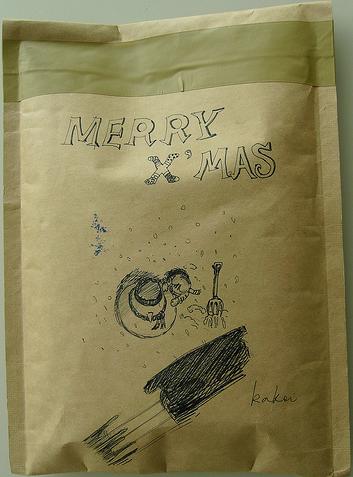 MERRY
X'MAS
kakoi